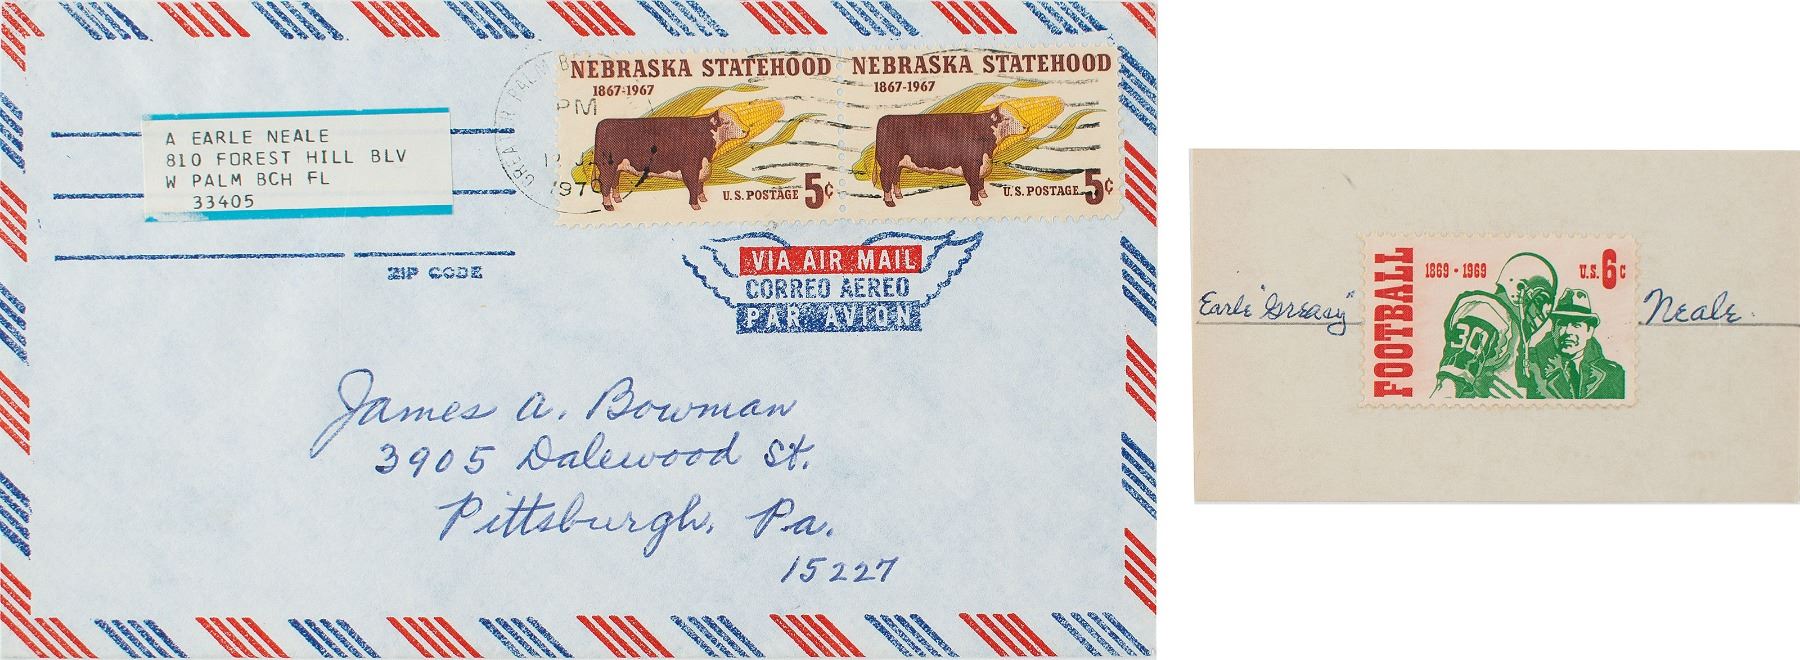 A EARLE NEALE
810 FOREST HILL BLV
W PALM BCH FL
33405
ZIP CODE
GREATER PALM B
PM
1970
NEBRASKA STATEHOOD
1867-1967
U.S. POSTAGE 5¢
NEBRASKA STATEHOOD
1867-1967
U.S. POSTAGE 5¢
VIA AIR MAIL
CORREO AEREO
PAR AVION
James A. Bowman
3905 Dalewood St.
Pittsburgh, Pa.
15227
Earle "Greasy" Neale.
FOOTBALL
1869 · 1969
U.S. 6¢
30